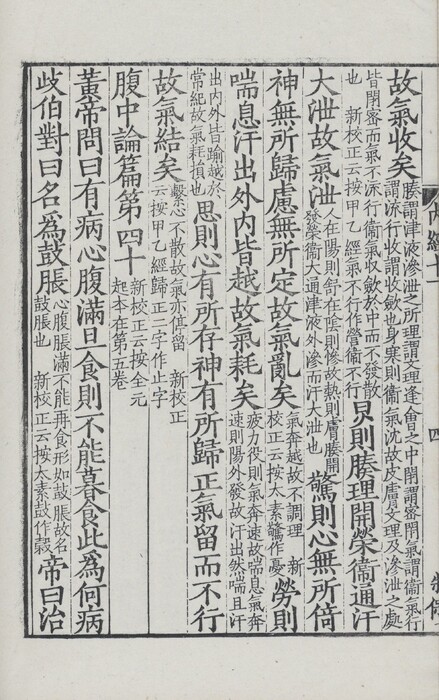 故氣收矣腠謂津液滲泄之所理謂文理逢會之中閉謂密閉氣謂衞氣行謂流行收謂收斂也身寒則衞氣沈故皮膚文理及滲泄之處
皆閉密而氣不流行衞氣收斂於中而不發散也 新校正云按甲乙經氣不行作營衞不行炅則腠理開榮衞通汗
大泄故氣泄人在陽則舒在陰則慘故熱則膚腠開發榮衞大通津液外滲而汗大泄也驚則心無所倚
神無所歸慮無所定故氣亂矣氣奔越故不調理 新校正云按太素驚作憂勞則
喘息汗出外內皆越故氣耗矣疲力役則氣奔速故喘息氣奔速則陽外發故汗出然喘且汗
出內外皆踰越於常紀故氣耗損也思則心有所存神有所歸正氣留而不行
故氣結矣繫心不散故氣亦停留 新校正云按甲乙經歸正二字作止字
腹中論篇第四十新校正云按全元起本在第五卷
黃帝問曰有病心腹滿旦食則不能暮食此爲何病
歧伯對曰名爲鼓脹心腹脹滿不能再食形如鼓脹故名鼓脹也 新校正云按太素鼓作糓帝曰治
內經十一
四